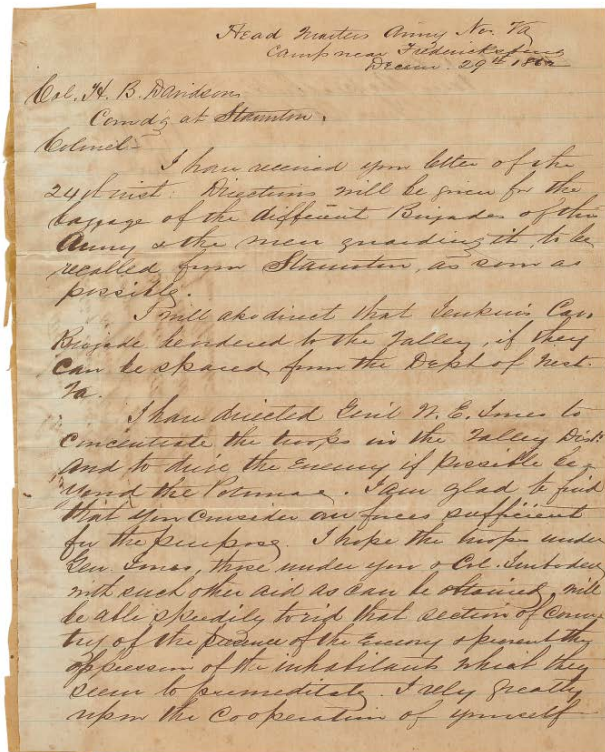 Head Quarters Army No. Va
Camp near Fredericksburg
Decem. 29th 1862
Col. H. B. Davidson
Comdg at Staunton.
Colonel-
I have received your letter of the
24th inst. Directions will be given for the
baggage of the different Brigades of this
Army & the men guarding it, to be
recalled from Staunton, as soon as
possible.
I will also direct that Jenkins Cav.
Brigade be ordered to the Valley, if they
can be spared from the Dept of West.
Va.
I have directed Genl W. E. Jones to
concentrate the troops in the Valley Dist:
and to drive the Enemy if possible be-
yond the Potomac. I am glad to find
that you consider our forces sufficient
for the purpose. I hope the troops under
Gen Jones, those under you & Col. Imboden
with such other aid as can be obtained, will
be able speedily to rid that section of coun-
try of the presence of the Enemy & prevent the
oppression of the inhabitants which they
seem to premeditate. I rely greatly
upon the cooperation of yourself